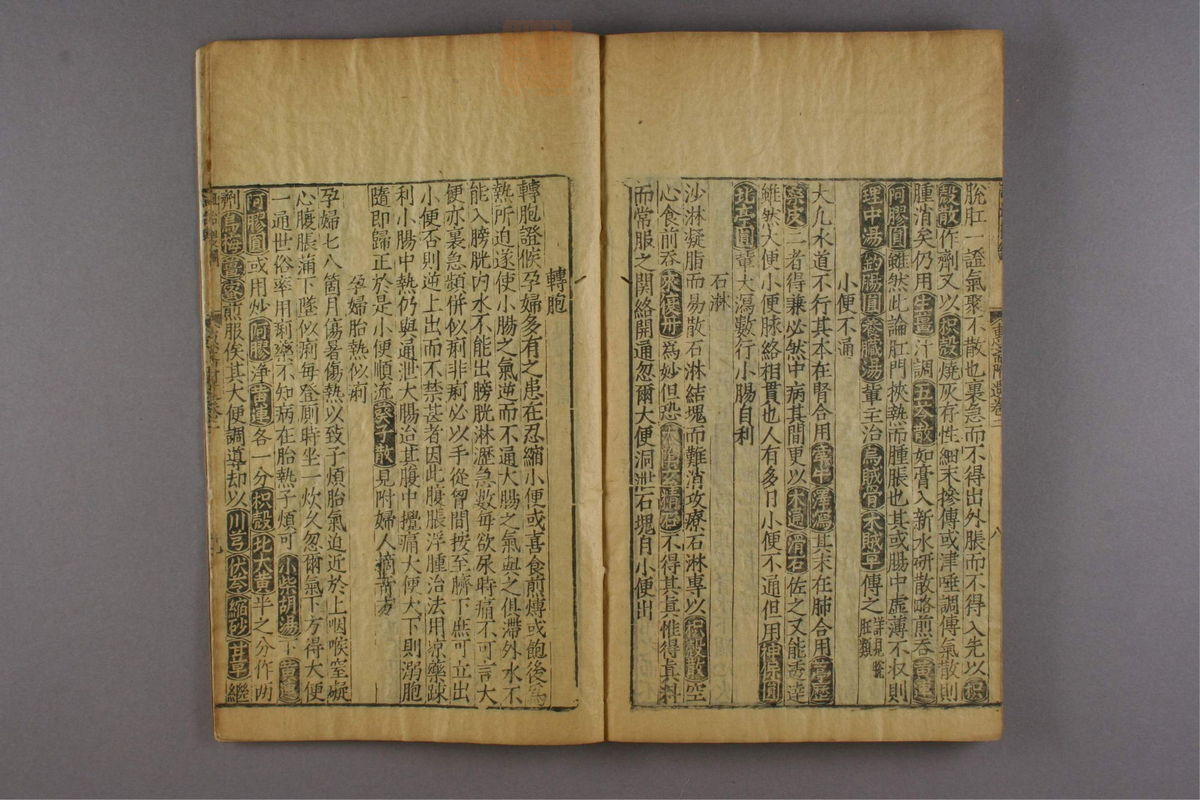 脫肛一證氣聚不散也裏急而不得出外脹而不得入先以枳
殼散作劑又以枳殼燒灰存性細末摻傅或津唾調傅氣散則
腫消矣仍用生薑汁調五苓散如膏入新水研散略煎吞黃連
阿膠圓雖然此論肛門挾熱而腫脹也其或腸中虛薄不收則
理中湯鈎腸圓養臟湯輩主治烏賊骨木賊草傅之詳見脫肛類
小便不通
大凡水道不行其本在腎合用牽牛澤瀉其末在肺合用葶藶
桑皮二者得兼必然中病其間更以木通滑石佐之又能透達
雖然大便小便脉絡相貫也人有多日小便不通但用神保圓
北亭圓輩大瀉數行小腸自利
石淋
沙淋凝脂而易散石淋結塊而難消攻療石淋專以枳殼散空
心食前吞來復丹爲妙但恐不得其真惟得真料
而常服之関絡開通忽爾大便洞泄石塊自小便出
轉胞
轉胞證候孕婦多有之患在忍縮小便或喜食煎煿或飽後爲
熱所迫遂使小腸之氣逆而不通大腸之氣與之俱滯外水不
能入膀胱內水不能出膀胱淋瀝急數每欲尿時痛不可言大
便亦裏急頻併似痢非痢必以手從胷間按至臍下庶可立出
小便否則逆上出而不禁甚者因此腹脹浮腫治法用凉藥踈
利小腸中熱仍與通泄大腸迨其腹中攪痛大便大下則溺胞
隨即歸正於是小便順流葵子散見附婦人方
孕婦胎熱似痢
孕婦七八箇月傷暑傷熱以致子煩胎氣迫近於上咽喉窒礙
心腹脹滿下墜似痢每登厠時坐一炊久忽爾氣下方得大便
一通世俗率用痢藥不知病在胎熱子煩可小柴胡湯下黃連
阿膠圓或用炒阿膠淨黃連各一分枳殼北大黃半之分作兩
劑烏梅薑煎服俟其大便調導却以川芎伏苓縮砂甘草繼